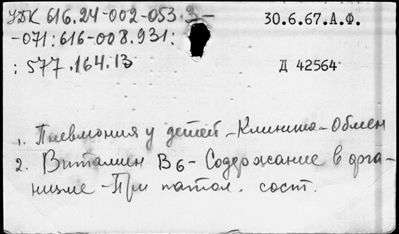 УДК 616.24-002-053.3-
30.6.67.А.Ф.
-071:616-008.931:
: 577.164.13
Д 42564
1. Пневмония у детей-Клиника-Обмен
2. Витамин В6-Содержание в орга-
низме-При патол. сост.